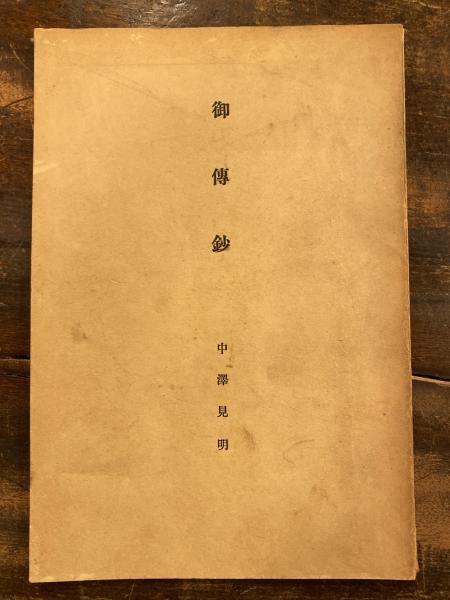 御傳鈔
中澤見明